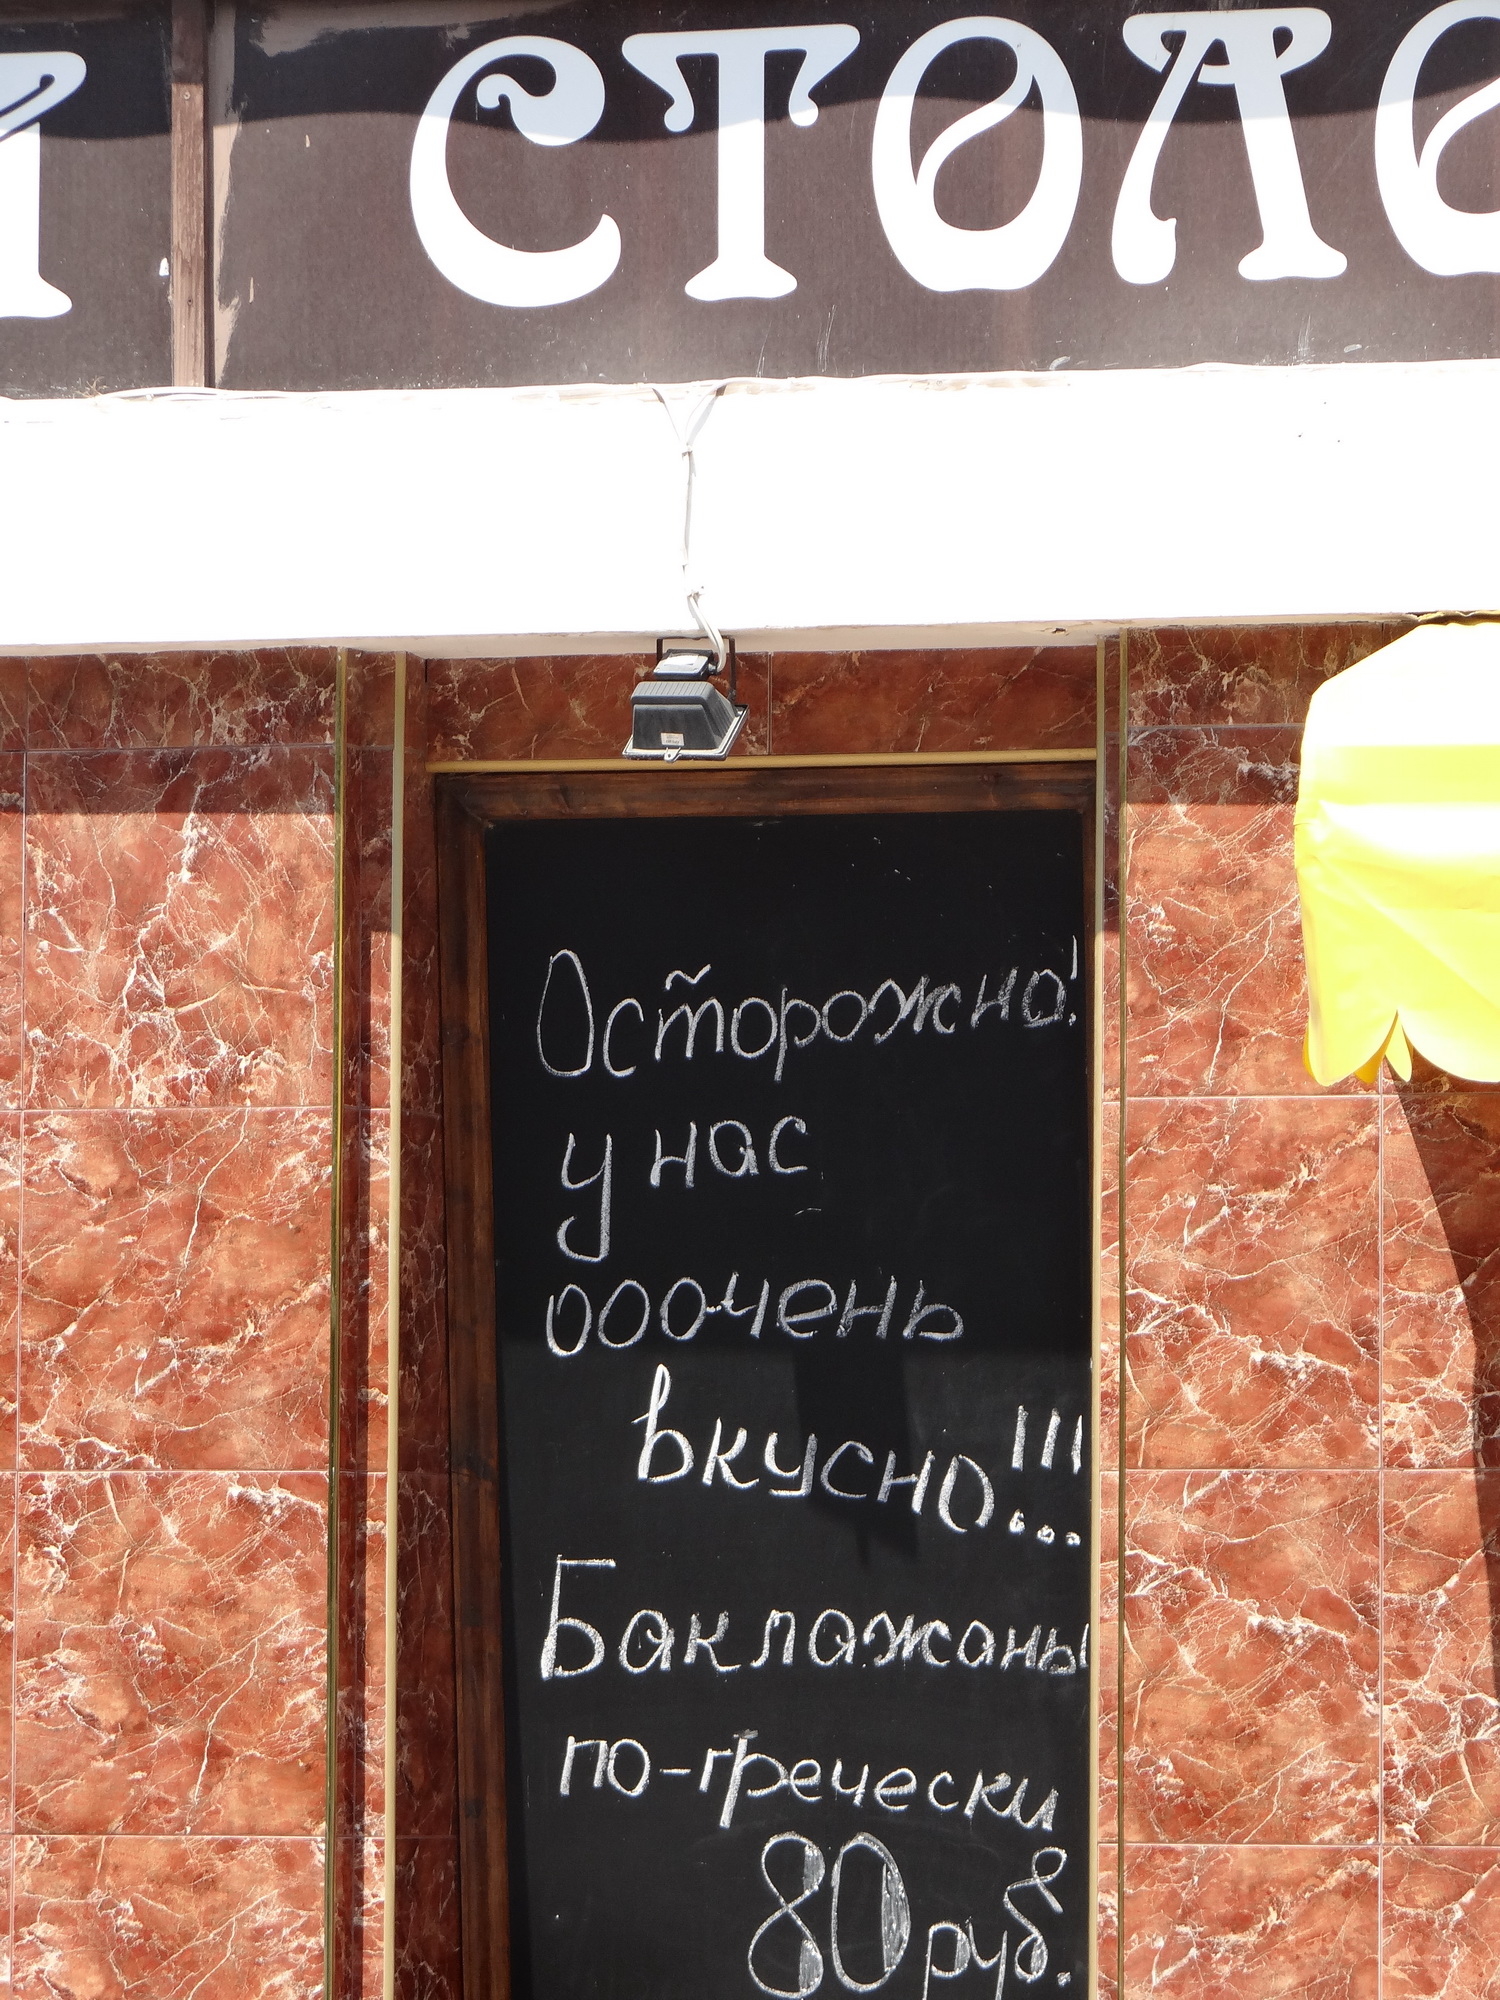 Осторожно!
у нас
ооочень
вкусно!!!
Баклажаны
по-гречески
80 руб.